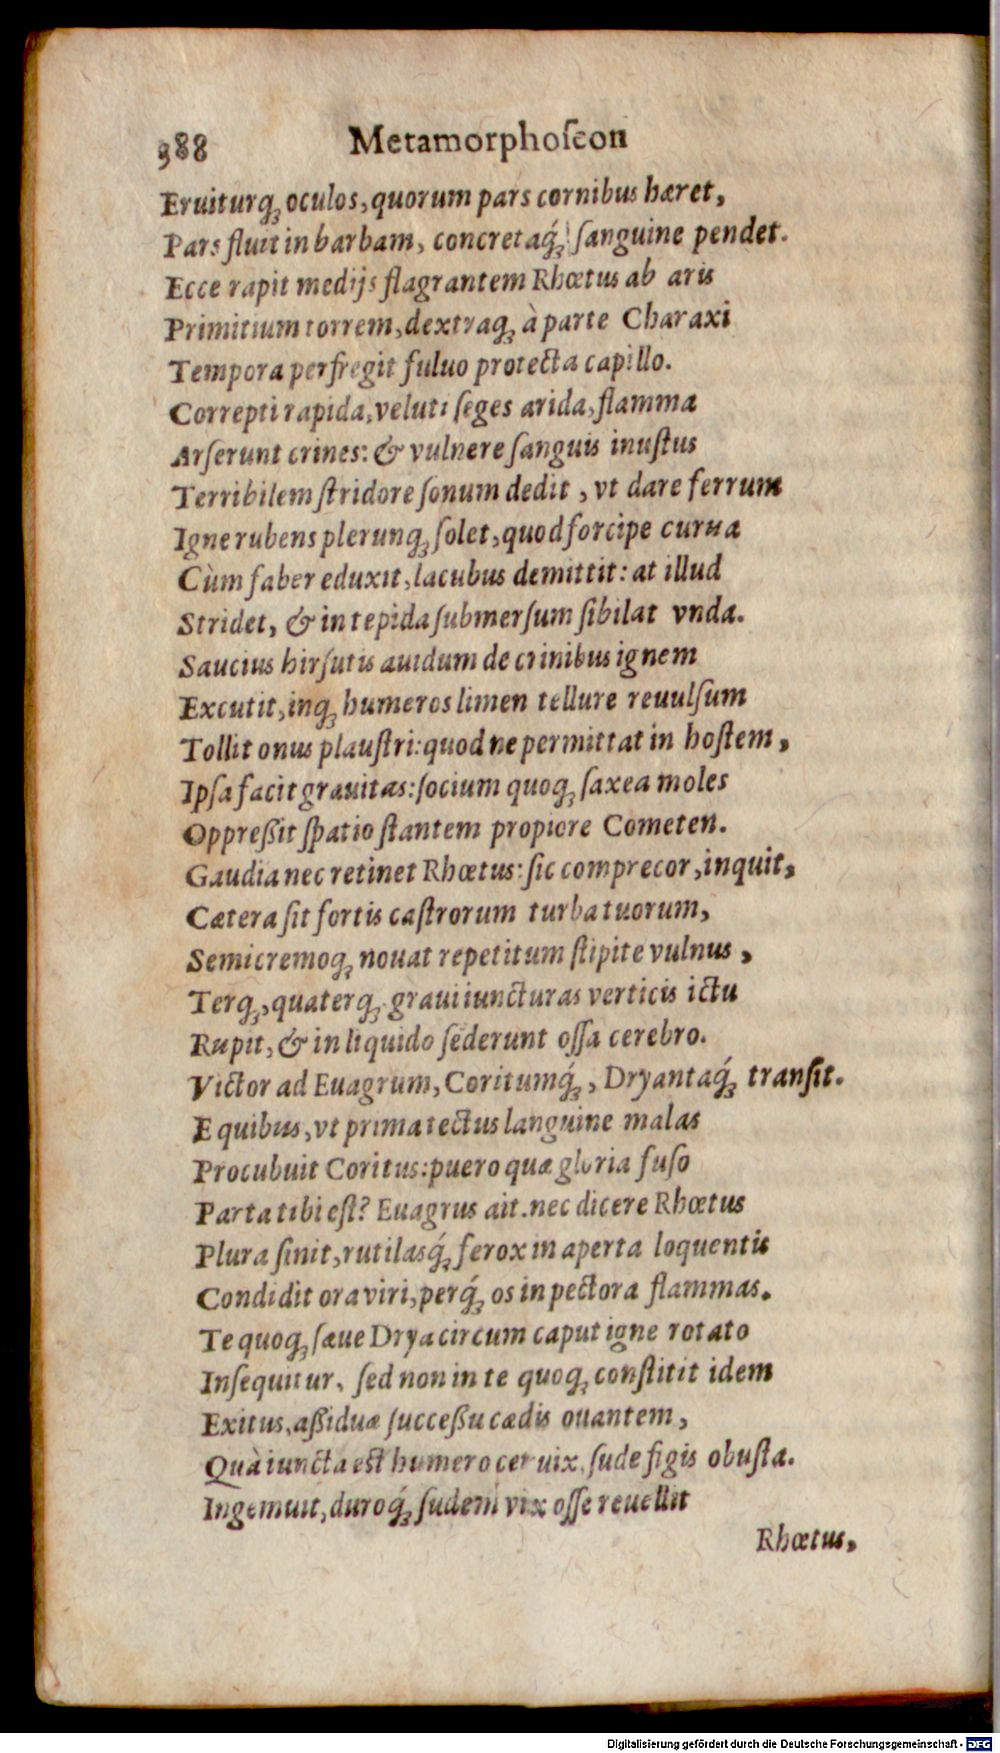 388 Metamorphoſeon
Eruiturq́ꝫ oculos, quorum pars cornibus hæret,
Pars fluit in barbam, concretaq́ꝫ ſanguine pendet.
Ecce rapit medijs flagrantem Rhœtus ab aris
Primitium torrem, dextraqꝫ à parte Charaxi
Tempora perfregit fuluo protecta capillo.
Correpti rapida, veluti ſeges arida, flamma
Arſerunt crines: & vulnere ſanguis inuſtus
Terribilem ſtridore ſonum dedit, vt dare ferrum
Igne rubens plerunqꝫ ſolet, quod forcipe curua
Cùm faber eduxit, lacubus demittit: at illud
Stridet, & in tepida ſubmerſum ſibilat vnda.
Saucius hirſutis auidum de crinibus ignem
Excutit, inqꝫ humeros limen tellure reuulſum
Tollit onus plauſtri: quod ne permittat in hoſtem,
Ipſa facit grauitas: ſocium quoqꝫ ſaxea moles
Oppreßit ſpatio ſtantem propiore Cometen.
Gaudia nec retinet Rhœtus: ſic comprecor, inquit,
Cætera ſit fortis caſtrorum turba tuorum,
Semicremoqꝫ nouat repetitum ſtipite vulnus,
Terqꝫ, quaterqꝫ graui iuncturas verticis ictu
Rupit, & in liquido ſéderunt oſſa cerebro.
Victor ad Euagrum, Coritumq́ꝫ, Dryantaq́ꝫ tranſit.
E quibus, vt prima tectus languine malas
Procubuit Coritus: puero quæ gloria fuſo
Parta tibi eſt? Euagrus ait. nec dicere Rhœtus
Plura ſinit, rutilasq́ꝫ ferox in aperta loquentis
Condidit ora viri, perq́ꝫ os in pectora flammas.
Te quoqꝫ ſæue Drya circum caput igne rotato
Inſequitur, ſed non in te quoqꝫ conſtitit idem
Exitus, aßiduæ ſucceßu cædis ouantem,
Quà iuncta est humero ceruix, ſude figis obuſta.
Ingemuit, duroq́ꝫ ſudem vix oſſe reuellit
Rhœtus,
Digitalisierung gefördert durch die Deutsche Forschungsgemeinschaft - DFG